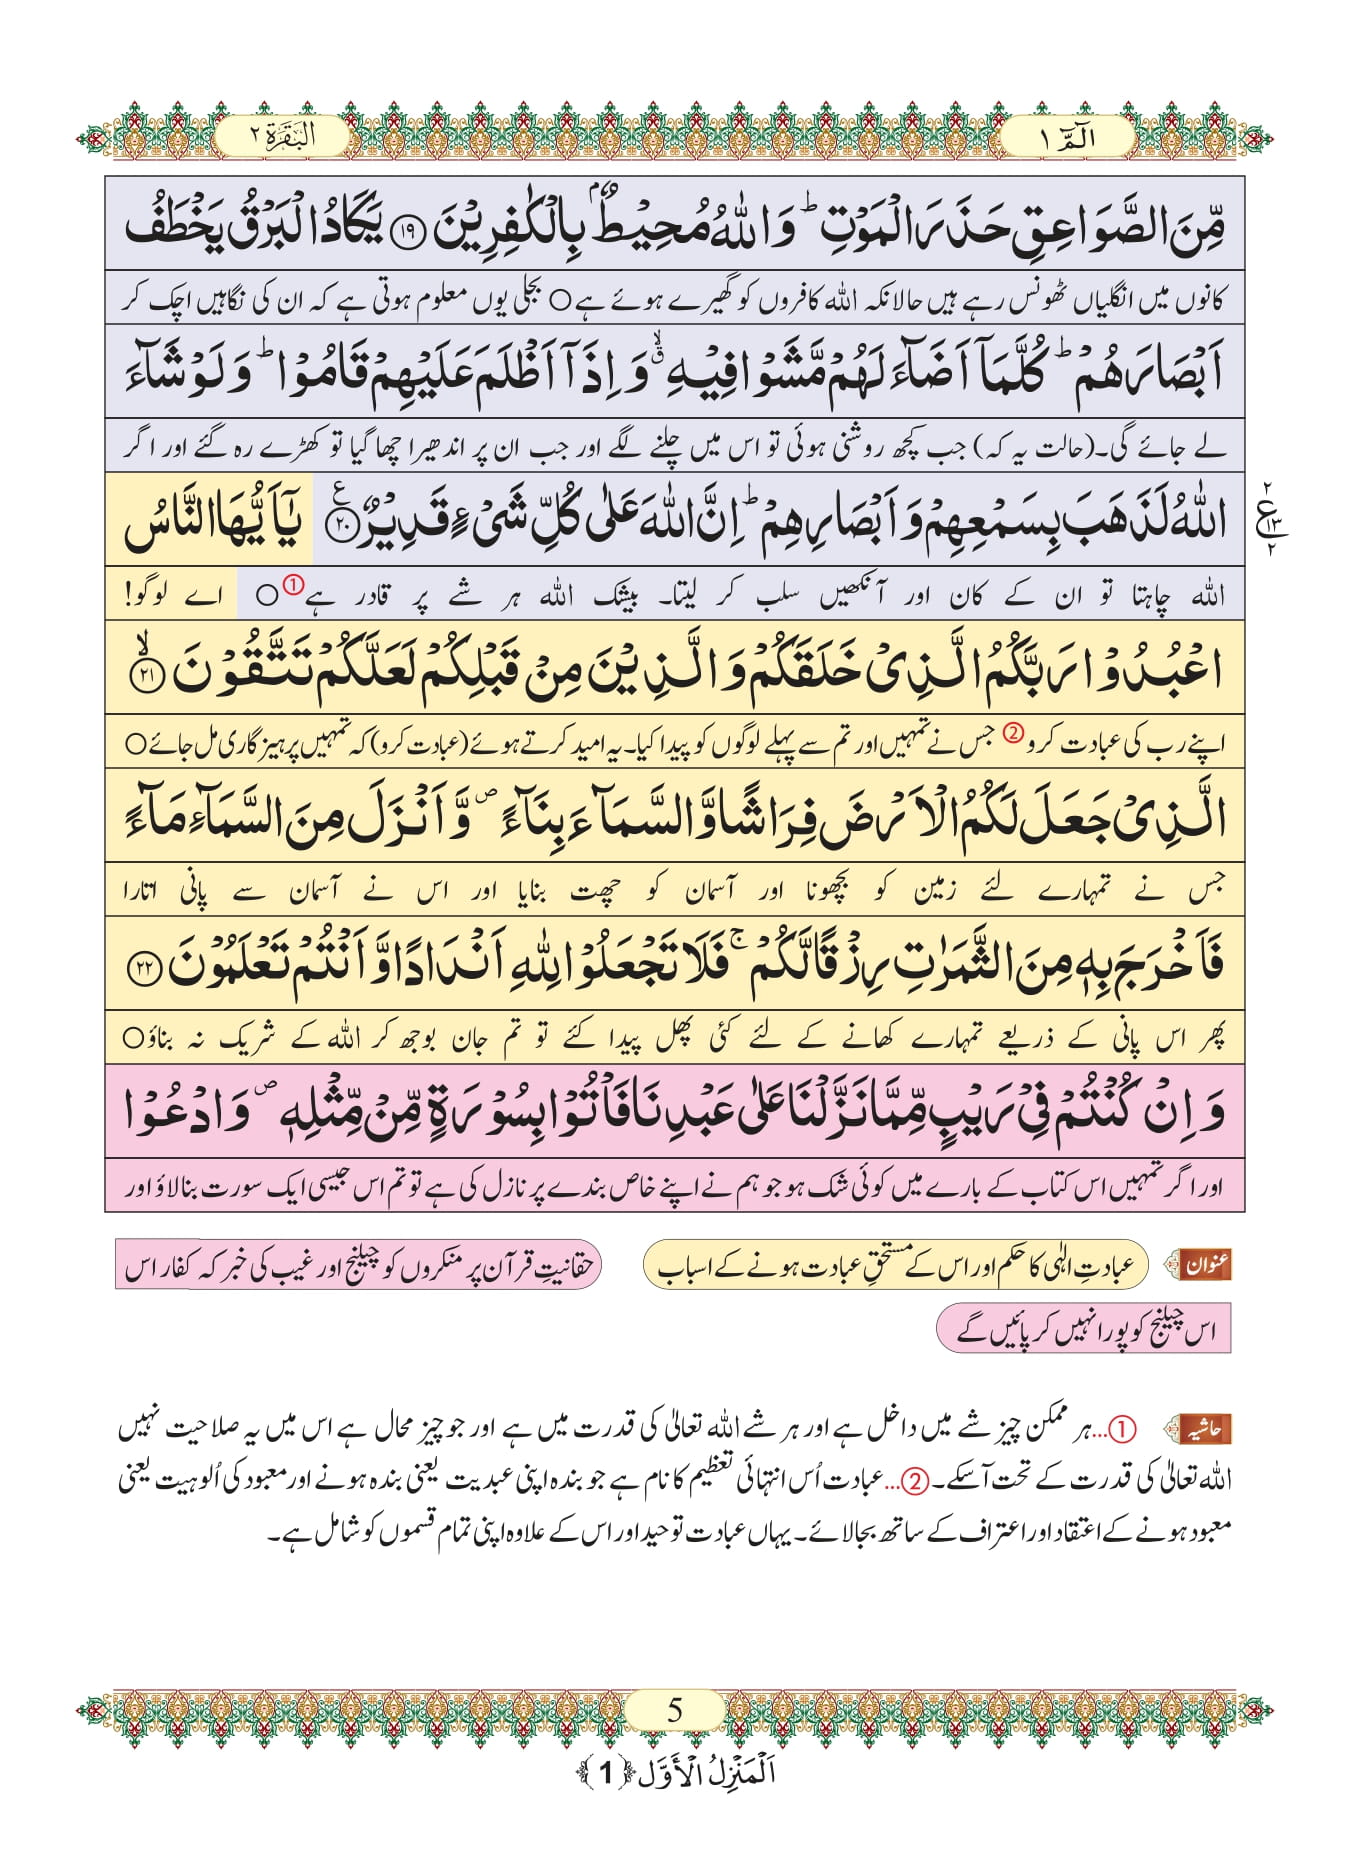 الٓمّٓ ١
البقرة ٢
مِّنَ الصَّوَاعِقِ حَذَرَ الْمَوْتِ ؕ وَاللّٰهُ مُحِیْطٌۢ بِالْكٰفِرِیْنَ ﴿۱۹﴾ یَكَادُ الْبَرْقُ یَخْطَفُ
کانوں میں انگلیاں ٹھونس رہے ہیں حالانکہ اللہ کافروں کو گھیرے ہوئے ہے○ بجلی یوں معلوم ہوتی ہے کہ ان کی نگاہیں اچک کر
اَبْصَارَهُمْ ؕ كُلَّمَاۤ اَضَآءَ لَهُمْ مَّشَوْا فِیْهِ ۙۗ وَ اِذَاۤ اَظْلَمَ عَلَیْهِمْ قَامُوْا ؕ وَ لَوْ شَآءَ
لے جائے گی۔(حالت یہ کہ) جب کچھ روشنی ہوئی تو اس میں چلنے لگے اور جب ان پر اندھیرا چھا گیا تو کھڑے رہ گئے اور اگر
اللّٰهُ لَذَهَبَ بِسَمْعِهِمْ وَ اَبْصَارِهِمْ ؕ اِنَّ اللّٰهَ عَلٰى كُلِّ شَیْءٍ قَدِیْرٌ ﴿۲۰﴾ ع یٰۤاَیُّهَا النَّاسُ
٢ ع ١٣ ٢
اللہ چاہتا تو ان کے کان اور آنکھیں سلب کر لیتا۔ بیشک اللہ ہر شے پر قادر ہے① ○ اے لوگو!
اعْبُدُوْا رَبَّكُمُ الَّذِیْ خَلَقَكُمْ وَ الَّذِیْنَ مِنْ قَبْلِكُمْ لَعَلَّكُمْ تَتَّقُوْنَ ﴿۲۱﴾ ۙ
اپنے رب کی عبادت کرو② جس نے تمہیں اور تم سے پہلے لوگوں کو پیدا کیا۔ یہ امید کرتے ہوئے (عبادت کرو) کہ تمہیں پرہیزگاری مل جائے○
الَّذِیْ جَعَلَ لَكُمُ الْاَرْضَ فِرَاشًا وَّ السَّمَآءَ بِنَآءً ۪ وَّ اَنْزَلَ مِنَ السَّمَآءِ مَآءً
جس نے تمہارے لئے زمین کو بچھونا اور آسمان کو چھت بنایا اور اس نے آسمان سے پانی اتارا
فَاَخْرَجَ بِهٖ مِنَ الثَّمَرٰتِ رِزْقًا لَّكُمْ ۚ فَلَا تَجْعَلُوْا لِلّٰهِ اَنْدَادًا وَّ اَنْتُمْ تَعْلَمُوْنَ ﴿۲۲﴾
پھر اس پانی کے ذریعے تمہارے کھانے کے لئے کئی پھل پیدا کئے تو تم جان بوجھ کر اللہ کے شریک نہ بناؤ○
وَ اِنْ كُنْتُمْ فِیْ رَیْبٍ مِّمَّا نَزَّلْنَا عَلٰى عَبْدِنَا فَاْتُوْا بِسُوْرَةٍ مِّنْ مِّثْلِهٖ ۪ وَ ادْعُوْا
اور اگر تمہیں اس کتاب کے بارے میں کوئی شک ہو جو ہم نے اپنے خاص بندے پر نازل کی ہے تو تم اس جیسی ایک سورت بنا لاؤ اور
عنوان عبادتِ الٰہی کا حکم اور اس کے مستحقِ عبادت ہونے کے اسباب حقانیتِ قرآن پر منکروں کو چیلنج اور غیب کی خبر کہ کفار اس
اس چیلنج کو پورا نہیں کر پائیں گے
حاشیہ ①...ہر ممکن چیز شے میں داخل ہے اور ہر شے اللہ تعالیٰ کی قدرت میں ہے اور جو چیز محال ہے اس میں یہ صلاحیت نہیں
اللہ تعالیٰ کی قدرت کے تحت آسکے۔ ②...عبادت اُس انتہائی تعظیم کا نام ہے جو بندہ اپنی عبدیت یعنی بندہ ہونے اور معبود کی اُلوہیت یعنی
معبود ہونے کے اعتقاد اور اعتراف کے ساتھ بجالائے۔ یہاں عبادت توحید اور اس کے علاوہ اپنی تمام قسموں کو شامل ہے۔
5
اَلْمَنْزِلُ الْأَوَّل ﴿1﴾